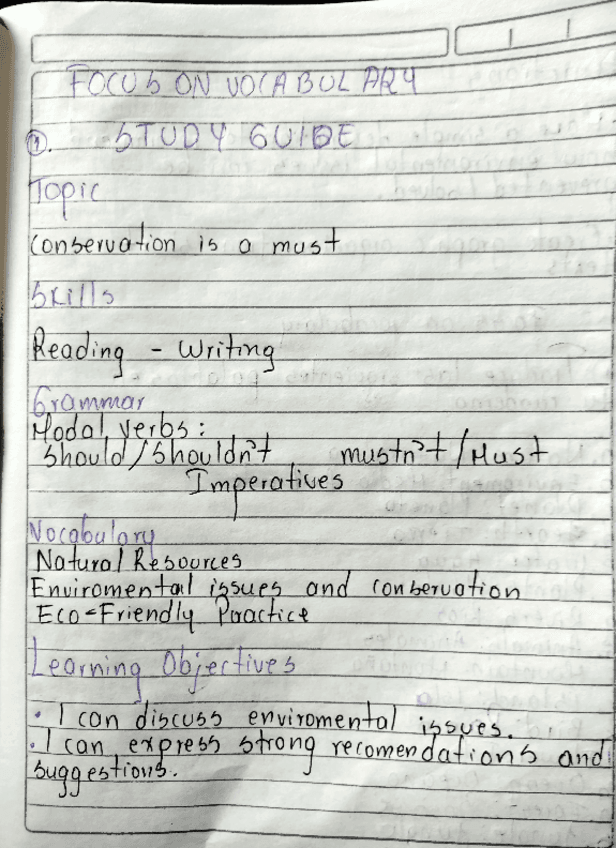 FOCUS ON VOCABULARY
1. STUDY GUIDE
Topic
Conservation is a must
Skills
Reading - Writing
Grammar
Modal verbs:
Should/Shouldn't mustn't/Must
Imperatives
Vocabulary
Natural Resources
Enviromental issues and conservation
Eco-Friendly Practice
Learning Objectives
• I can discuss enviromental issues.
• I can express strong recomendations and
suggestions.